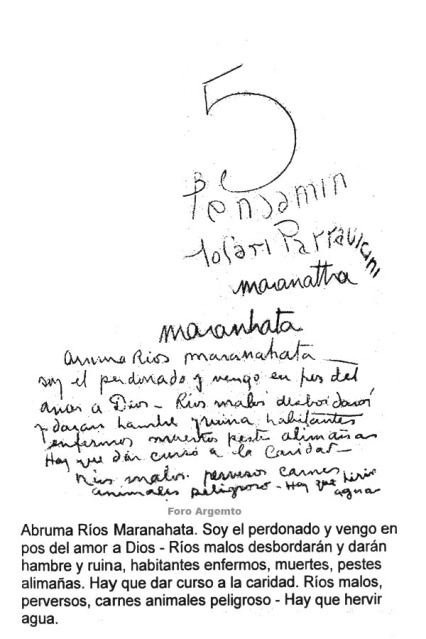 5
Benjamin
Solari Parravicini
maranatha
maranhata
Abruma Ríos maranahata
soy el perdonado y vengo en pos del
amor a Dios - Ríos malos desbordarán
y darán hambre y ruina, habitantes
enfermos muertes pestes alimañas
Hay que dar curso a la Caridad -
Ríos malos. perversos carnes
animales peligroso - Hay que hervir
agua
Foro Argemto
Abruma Ríos Maranahata. Soy el perdonado y vengo en
pos del amor a Dios - Ríos malos desbordarán y darán
hambre y ruina, habitantes enfermos, muertes, pestes
alimañas. Hay que dar curso a la caridad. Ríos malos,
perversos, carnes animales peligroso - Hay que hervir
agua.